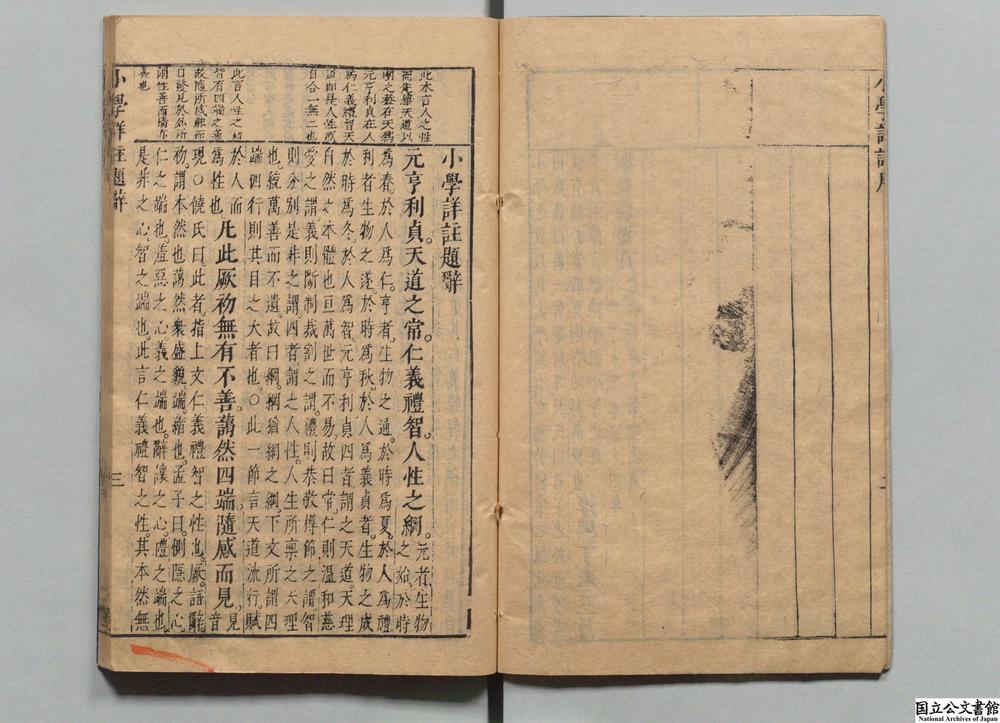 小學詳註序
二
小學詳註題辭
元亨利貞。天道之常。仁義禮智。人性之綱。元者。生物之始。於時
爲春。於人爲仁。亨者。生物之通。於時爲夏。於人爲禮
利者。生物之遂。於時爲秋。於人爲義。貞者。生物之成
於時爲冬。於人爲智。元亨利貞四者。謂之天道。天理
自然之本體也。亘萬世而不易。故曰常。仁則溫和慈
愛之謂。義則斷制裁割之謂。禮則恭敬撙節之謂。智
則分別是非之謂。四者謂之人性。人生所禀之天理
也。統萬善而不遺。故曰綱。綱猶網之綱。下文所謂四
端四行。則其目之大者也。○此一節言天道流行。賦
於人而爲性也。凡此厥初無有不善藹然四端隨感而見。見音
現。○饒氏曰。此者。指上文仁義禮智之性也。厥。語辭。
初。謂本然也。藹然。衆盛貌。端。緒也。孟子曰。惻隱之心。
仁之端也。羞惡之心。義之端也。辭讓之心。禮之端也。
是非之心。智之端也。此言仁義禮智之性。其本然無
此本言人之性
而先舉天道以
明之蓋在天爲
元亨利貞在人
爲仁義禮智天
道即是人性
自合一無二也
此言人性之綱
皆有四端之善
故隨所感觸而
日發見於外所
謂性善而情亦
善也
小學詳註題辭
三
国立公文書館
National Archives of Japan